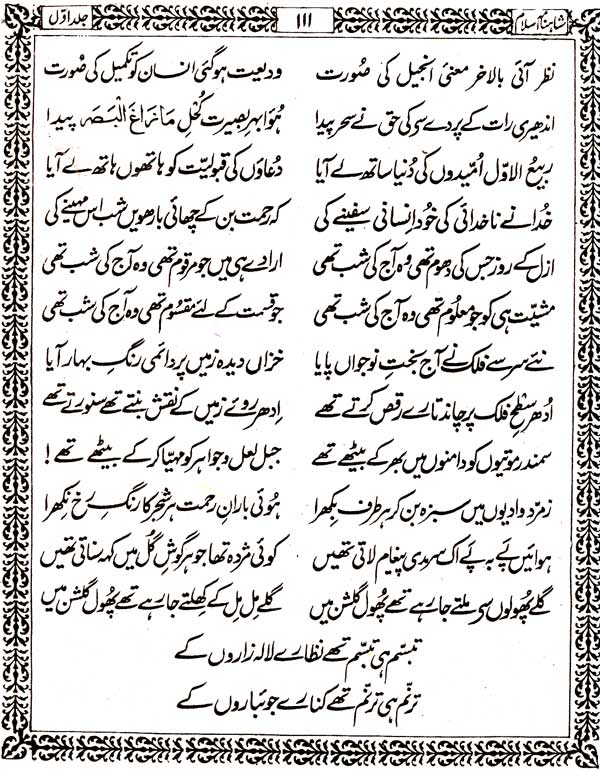 شاہنامۂ اسلام ۱۱۱ جلد اوّل
نظر آئی بالآخر معنیٔ انجیل کی صُورت ودیعت ہو گئی انسان کو تکمیل کی صُورت
اندھیری رات کے پردے سے کی حق نے سحر پیدا ہُوا بہرِ بصیرت کُحلِ مَا زَاغَ الْبَصَر پیدا
ربیعُ الاوّل اُمیدوں کی دُنیا ساتھ لے آیا دُعاؤں کی قبولیّت کو ہاتھوں ہاتھ لے آیا
خُدا نے ناخدائی کی خُود انسانی سفینے کی کہ رحمت بن کے چھائی بارھویں شب اس مہینے کی
ازل کے روز جس کی دھوم تھی وہ آج کی شب تھی ارادے ہی میں جو مرقوم تھی وہ آج کی شب تھی
مشیّت ہی کو جو معلُوم تھی وہ آج کی شب تھی جو قسمت کے لئے مقسُوم تھی وہ آج کی شب تھی
نئے سر سے فلک نے آج بختِ نوجواں پایا خزاں دیدہ زمیں پر دائمی رنگِ بہار آیا
اُدھر سطحِ فلک پر چاند تارے رقص کرتے تھے اِدھر روئے زمیں کے نقش بنتے تھے سنورتے تھے
سمندر موتیوں کو دامنوں میں بھر کے بیٹھے تھے جبل لعل و جواہر کو مہیّا کر کے بیٹھے تھے !
زمرّد وادیوں میں سبزہ بن کر ہر طرف بِکھرا ہُوئی بارانِ رحمت ہر شجر کا رنگِ رخ نِکھرا
ہوائیں پے بہ پے اک سرمدی پیغام لاتی تھیں کوئی مژدہ تھا جو ہر گوشِ گُل میں کہہ سناتی تھیں
گلے پھُولوں سے ملتے جا رہے تھے پھُول گلشن میں گلے مِل مِل کے کھِلتے جا رہے تھے پھُول گلشن میں
تبسّم ہی تبسّم تھے نظارے لالہ زاروں کے
ترنّم ہی ترنّم تھے کنارے جوئباروں کے